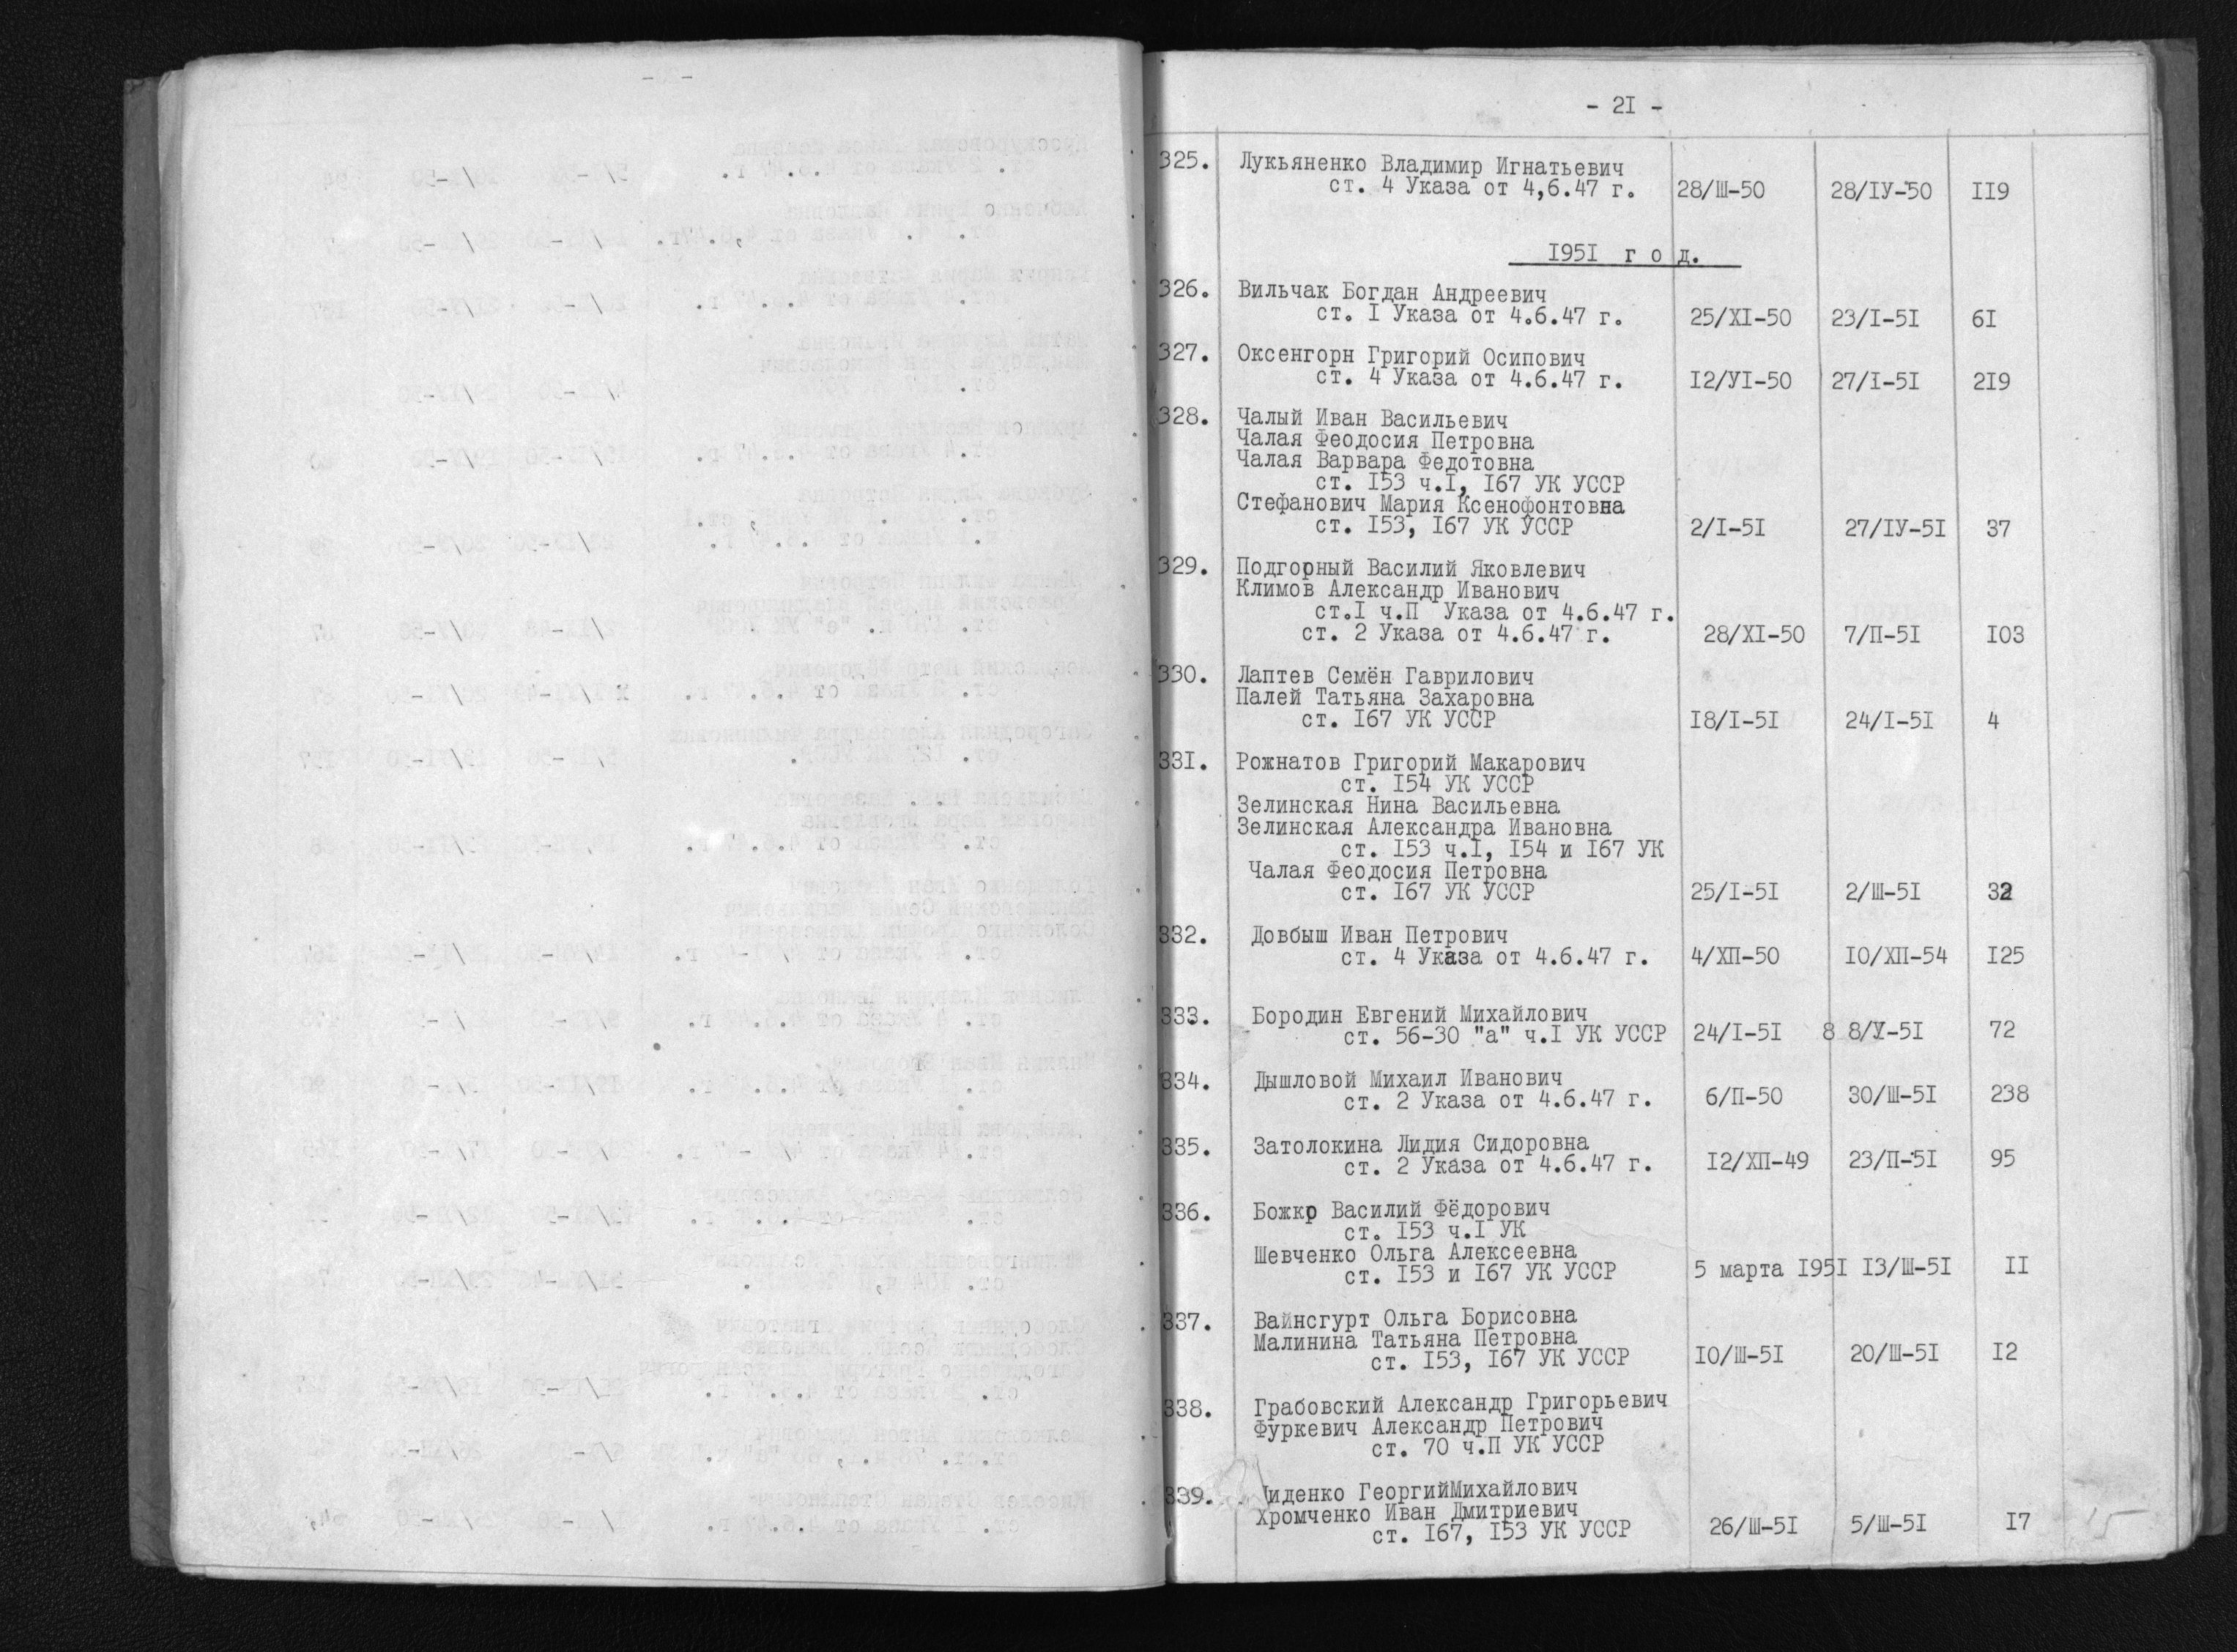 - 2I -
325. Лукьяненко Владимир Игнатьевич
ст. 4 Указа от 4,6.47 г. 28/Ш-50 28/IУ-50 II9
I95I г о д.
326. Вильчак Богдан Андреевич
ст. I Указа от 4.6.47 г. 25/XI-50 23/I-5I 6I
327. Оксенгорн Григорий Осипович
ст. 4 Указа от 4.6.47 г. I2/УI-50 27/I-5I 2I9
328. Чалый Иван Васильевич
Чалая Феодосия Петровна
Чалая Варвара Федотовна
ст. I53 ч.I, I67 УК УССР
Стефанович Мария Ксенофонтовна
ст. I53, I67 УК УССР 2/I-5I 27/IУ-5I 37
329. Подгорный Василий Яковлевич
Климов Александр Иванович
ст.I ч.П Указа от 4.6.47 г.
ст. 2 Указа от 4.6.47 г. 28/XI-50 7/П-5I I03
330. Лаптев Семён Гаврилович
Палей Татьяна Захаровна
ст. I67 УК УССР I8/I-5I 24/I-5I 4
33I. Рожнатов Григорий Макарович
ст. I54 УК УССР
Зелинская Нина Васильевна
Зелинская Александра Ивановна
ст. I53 ч.I, I54 и I67 УК
Чалая Феодосия Петровна
ст. I67 УК УССР 25/I-5I 2/Ш-5I 32
332. Довбыш Иван Петрович
ст. 4 Указа от 4.6.47 г. 4/ХП-50 I0/ХП-54 I25
333. Бородин Евгений Михайлович
ст. 56-30 "а" ч.I УК УССР 24/I-5I 8 8/У-5I 72
334. Дышловой Михаил Иванович
ст. 2 Указа от 4.6.47 г. 6/П-50 30/Ш-5I 238
335. Затолокина Лидия Сидоровна
ст. 2 Указа от 4.6.47 г. I2/ХП-49 23/П-5I 95
336. Божко Василий Фёдорович
ст. I53 ч.I УК
Шевченко Ольга Алексеевна
ст. I53 и I67 УК УССР 5 марта I95I I3/Ш-5I II
337. Вайнсгурт Ольга Борисовна
Малинина Татьяна Петровна
ст. I53, I67 УК УССР I0/Ш-5I 20/Ш-5I I2
338. Грабовский Александр Григорьевич
Фуркевич Александр Петрович
ст. 70 ч.П УК УССР
339. Диденко ГеоргийМихайлович
Хромченко Иван Дмитриевич
ст. I67, I53 УК УССР 26/Ш-5I 5/Ш-5I I7
15